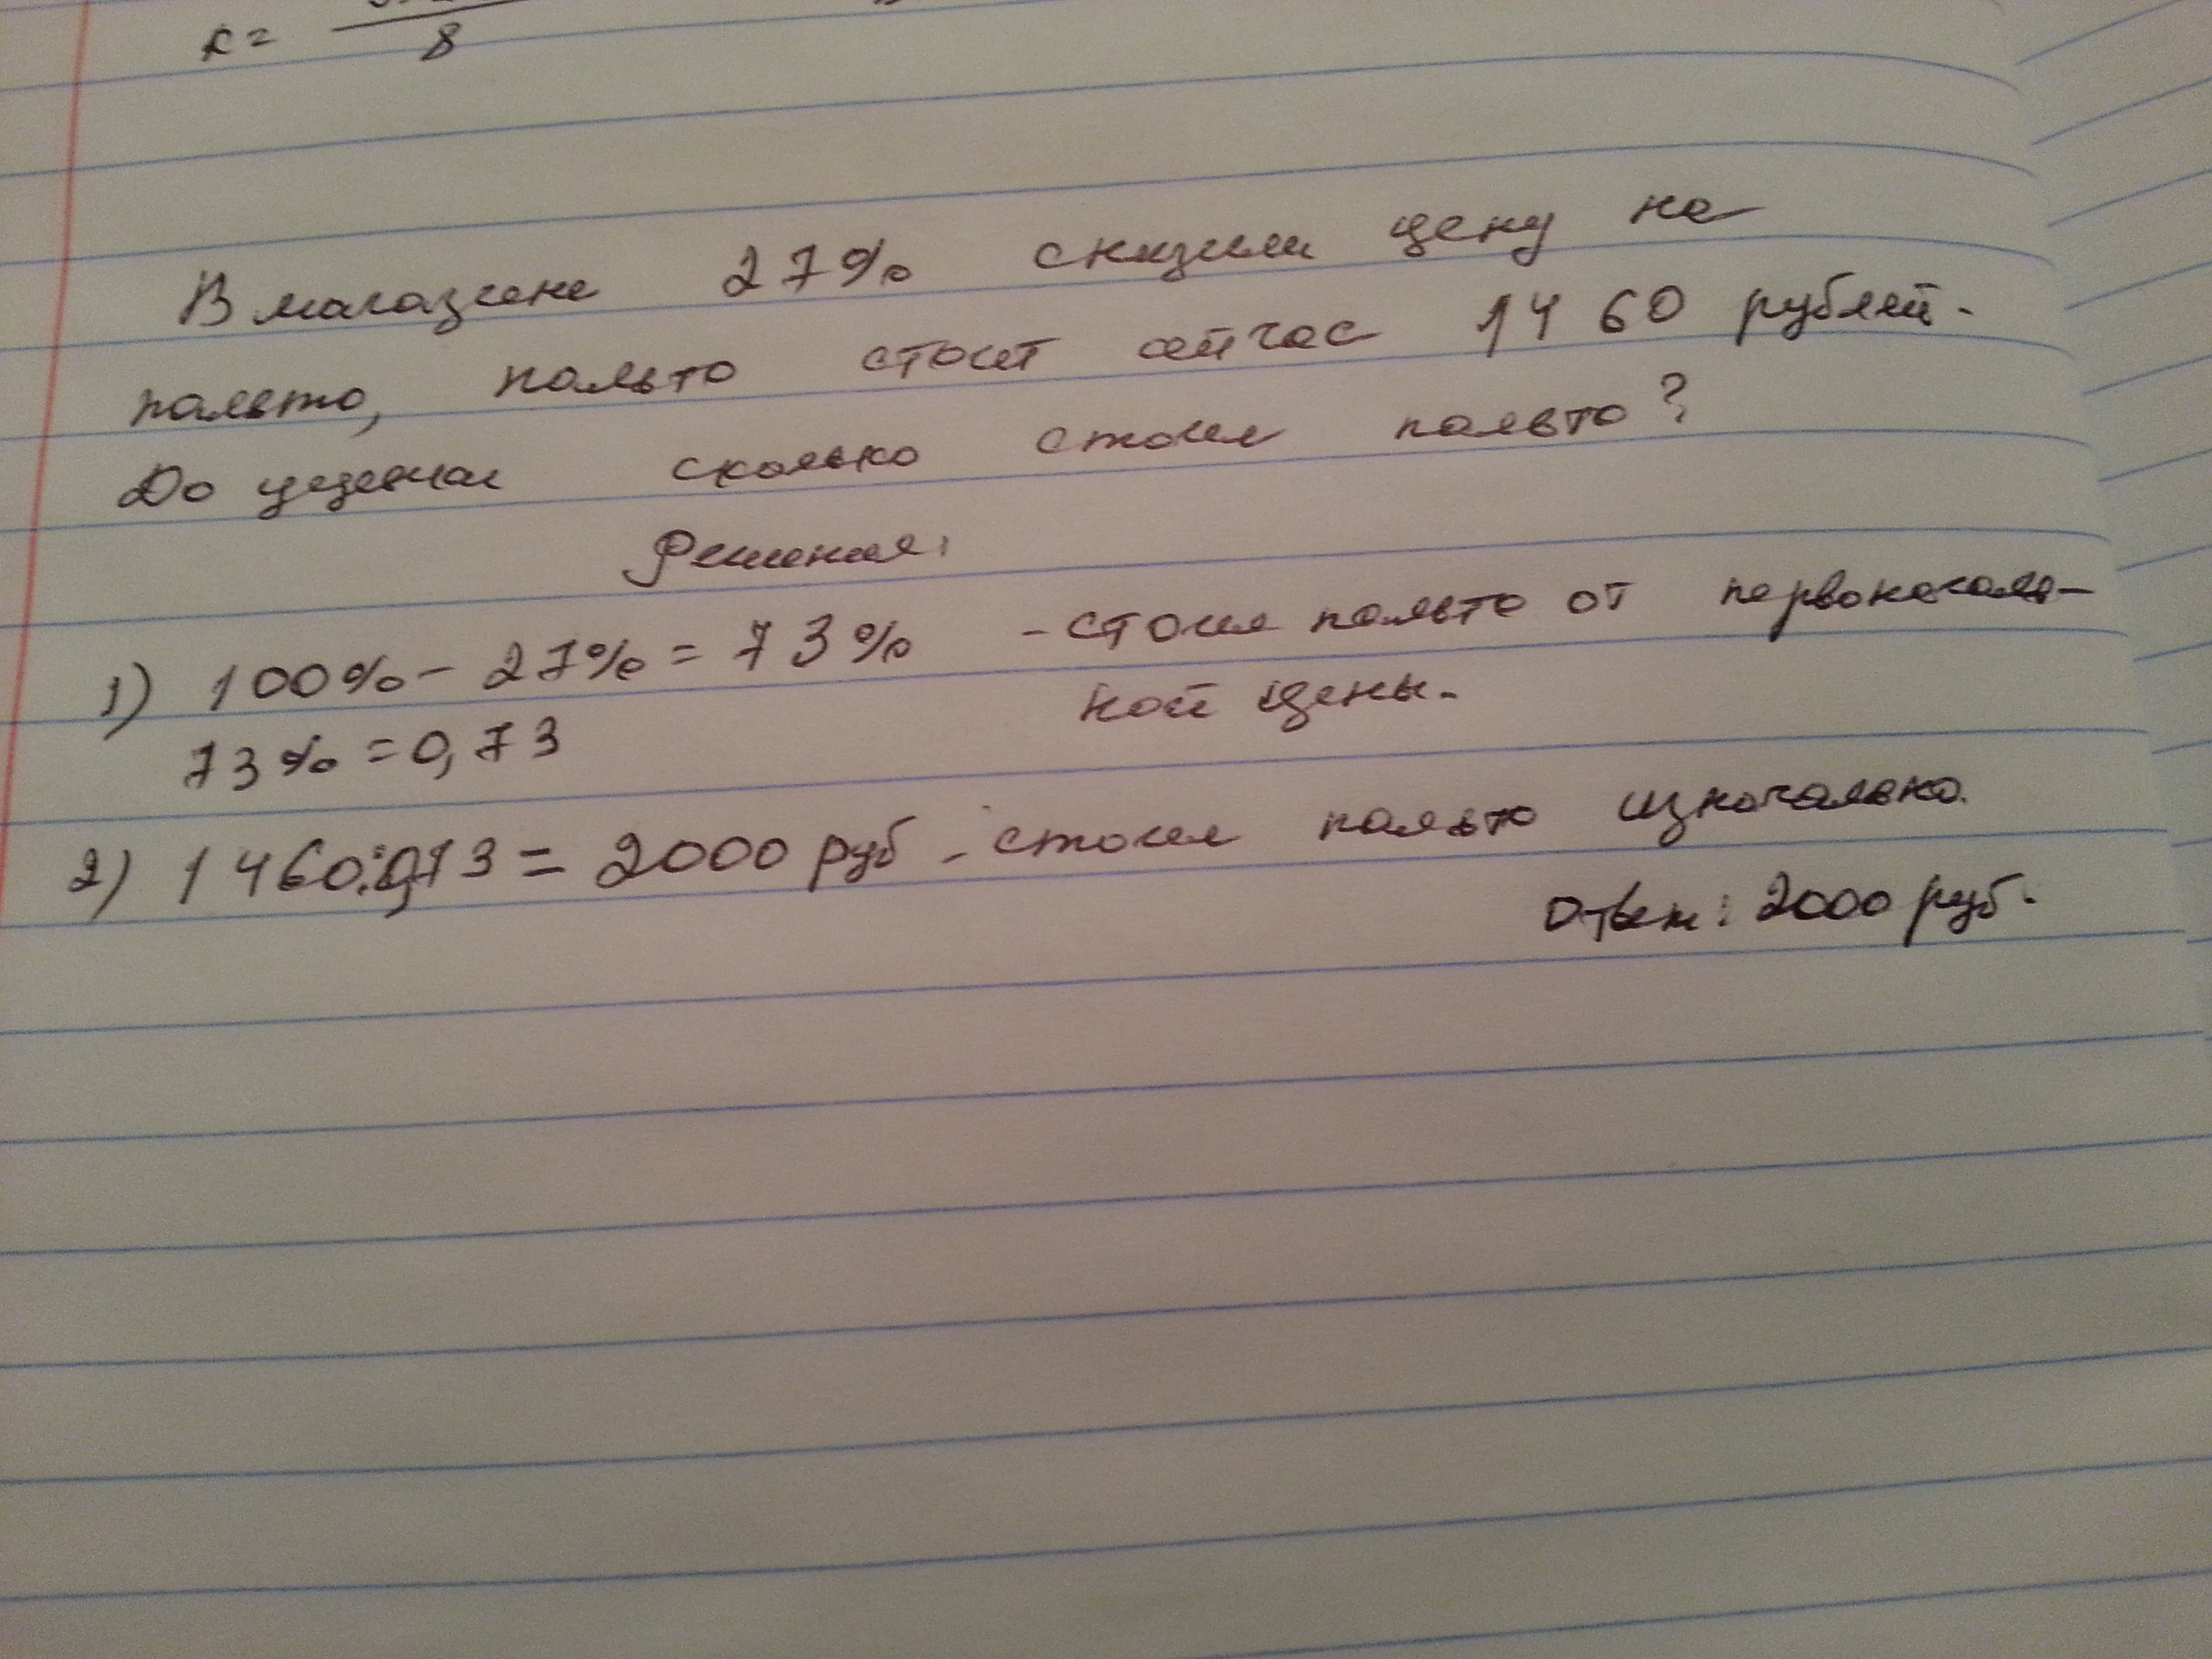 к = 8
В магазине 27% снизили цену на
пальто, пальто стоит сейчас 1460 рублей.
До уценки сколько стоил пальто?
Решения:
1) 100% - 27% = 73% - стоил пальто от первоначаль-
ной цены.
73% = 0,73
2) 1460:0,73 = 2000 руб - стоил пальто изначально.
Ответ: 2000 руб.